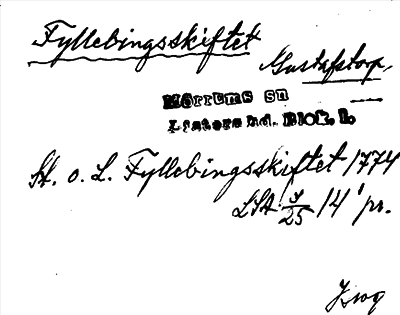 Fyllebingsskiftet
Gustafstorp,
Mörrums sn
Listers hd. Blek. l.
St. o. L. Fyllebingsskiftet 1774
LSA 9/25 14' pr.